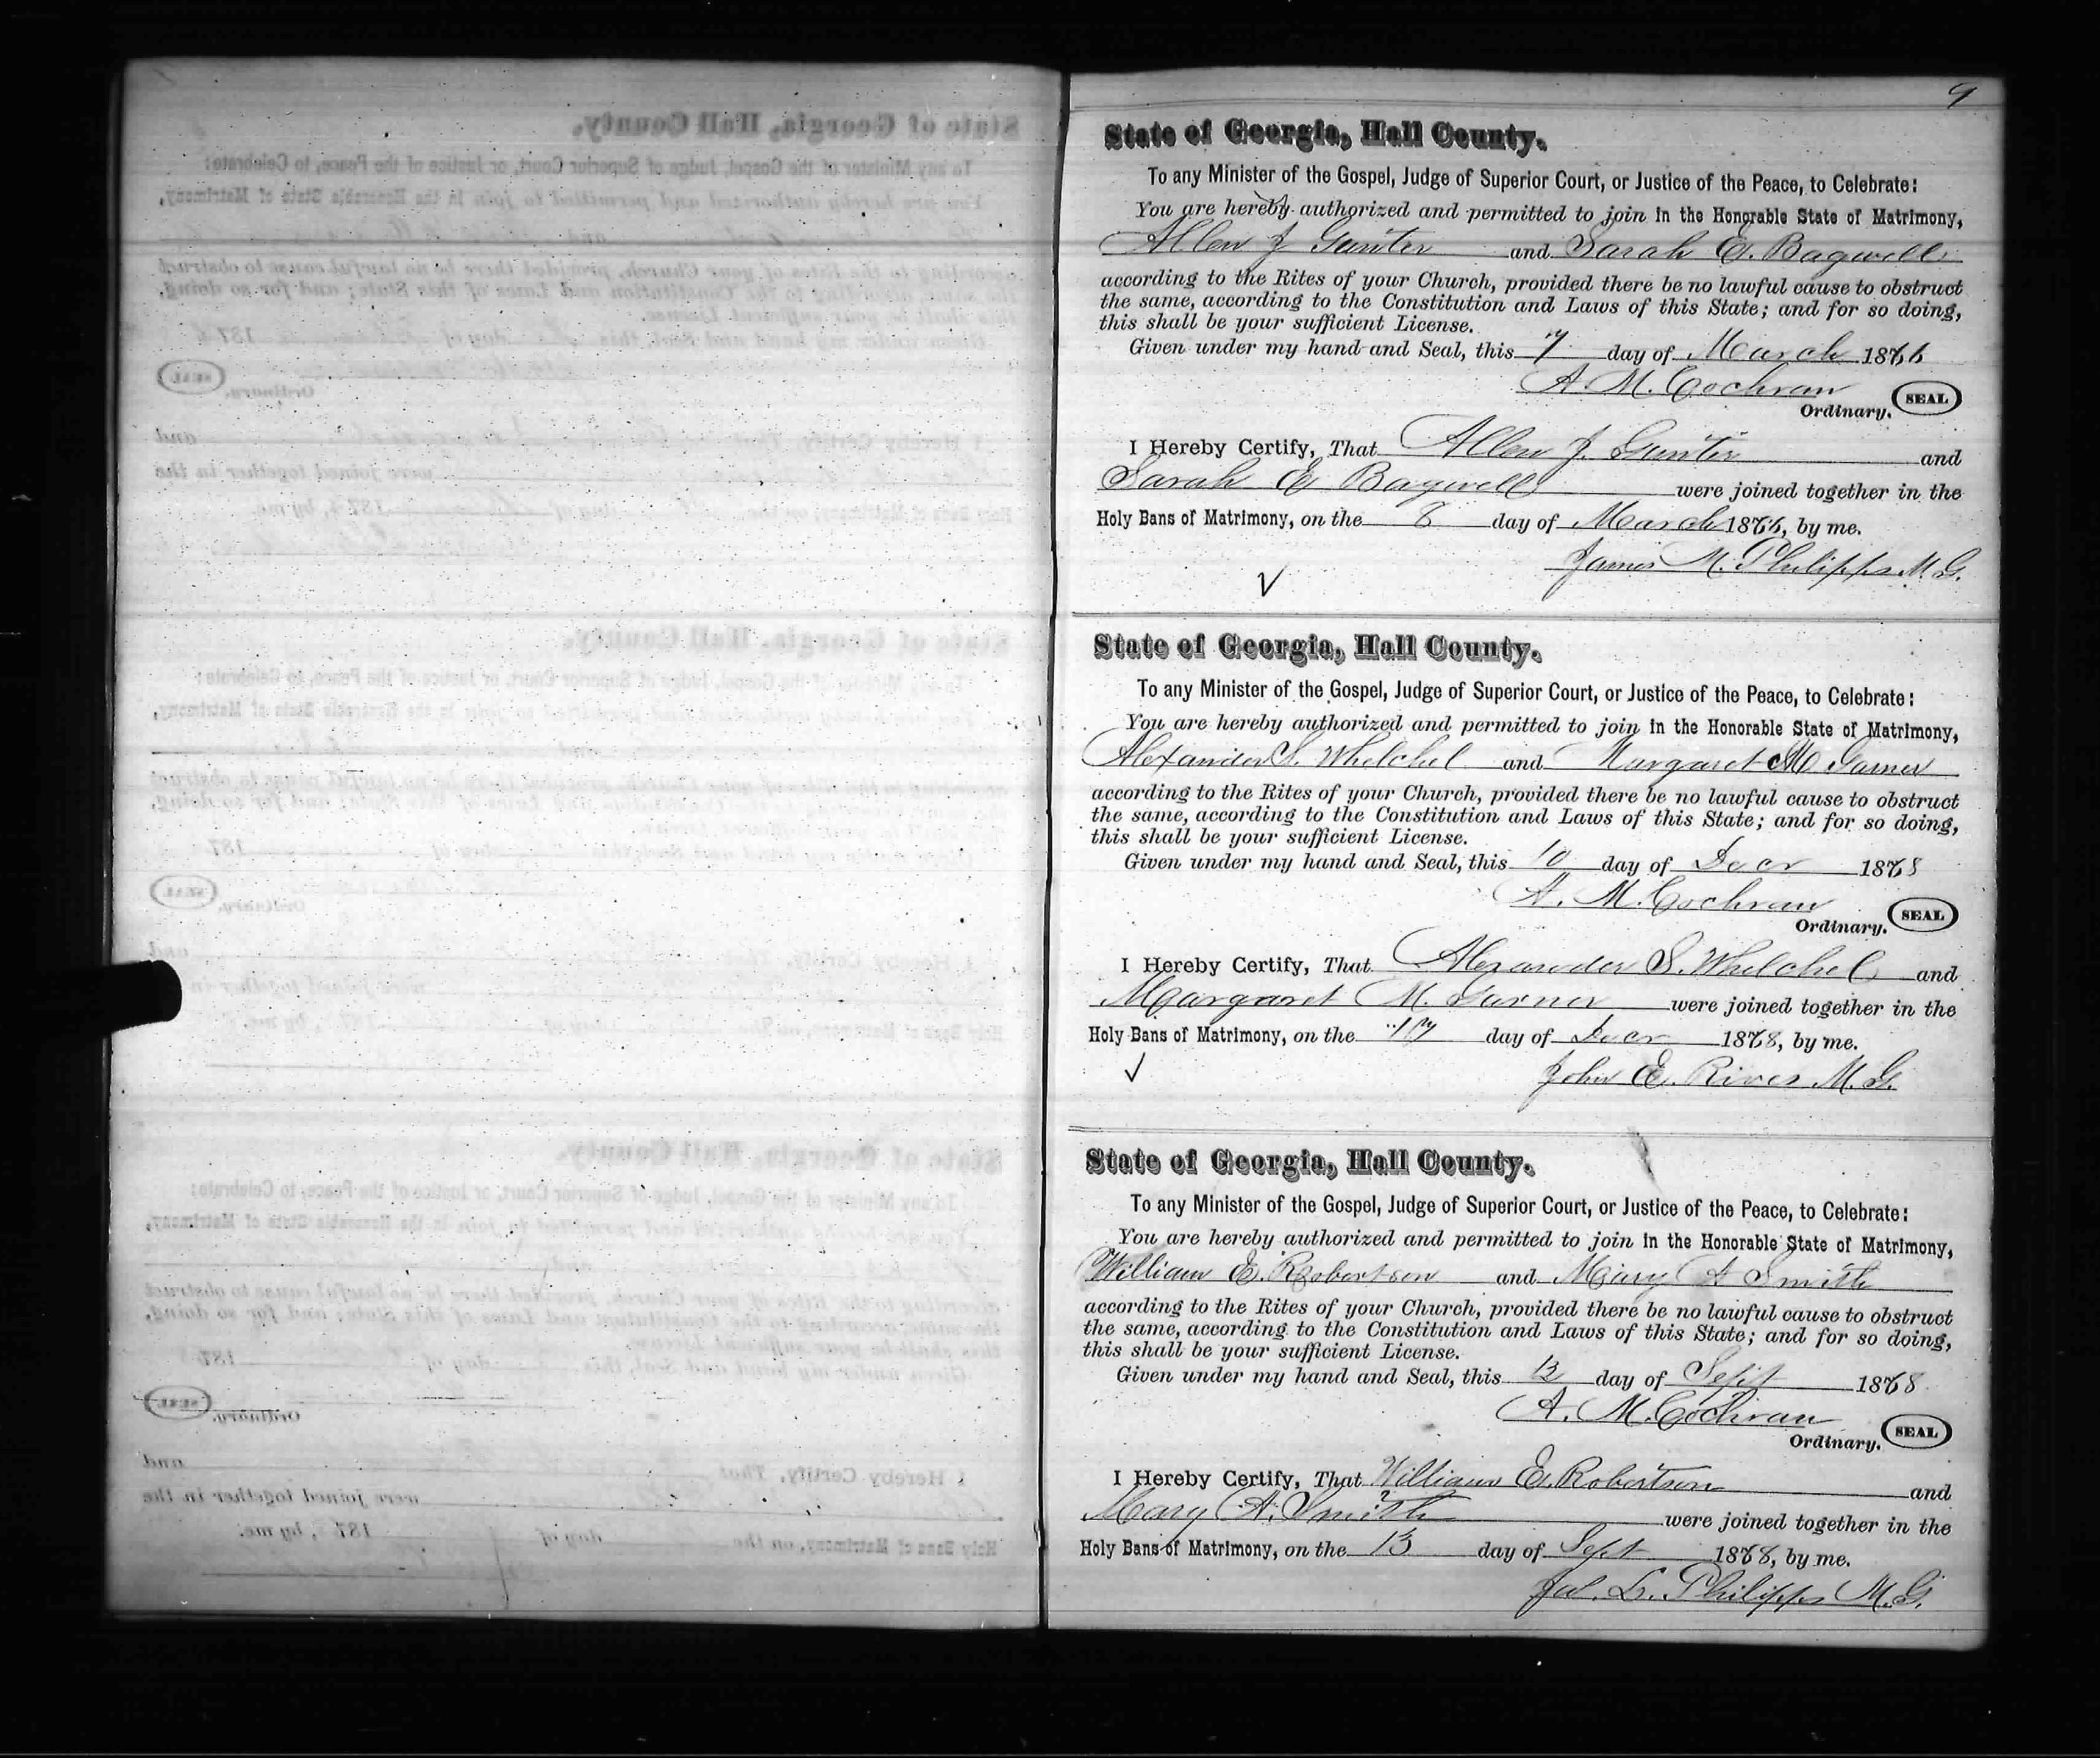 9
State of Georgia, Hall County.
To any Minister of the Gospel, Judge of Superior Court, or Justice of the Peace, to Celebrate:
You are hereby authorized and permitted to join in the Honorable State of Matrimony,
Allen J Gunter and Sarah E. Bagwell
according to the Rites of your Church, provided there be no lawful cause to obstruct
the same, according to the Constitution and Laws of this State; and for so doing,
this shall be your sufficient License.
Given under my hand and Seal, this 7 day of March 1866
A. M. Cochran
Ordinary. SEAL
I Hereby Certify, That Allen J. Gunter and
Sarah E Bagwell were joined together in the
Holy Bans of Matrimony, on the 8 day of March 1866, by me.
James M. Philipps M.G.
State of Georgia, Hall County.
To any Minister of the Gospel, Judge of Superior Court, or Justice of the Peace, to Celebrate:
You are hereby authorized and permitted to join in the Honorable State of Matrimony,
Alexander S. Whelchel and Margaret M Garner
according to the Rites of your Church, provided there be no lawful cause to obstruct
the same, according to the Constitution and Laws of this State; and for so doing,
this shall be your sufficient License.
Given under my hand and Seal, this 10 day of Decr 1868
A. M. Cochran
Ordinary. SEAL
I Hereby Certify, That Alexander S. Whelchel and
Margaret M. Garner were joined together in the
Holy Bans of Matrimony, on the 17 day of Decr 1868, by me.
John E. Rives M.G.
State of Georgia, Hall County.
To any Minister of the Gospel, Judge of Superior Court, or Justice of the Peace, to Celebrate:
You are hereby authorized and permitted to join in the Honorable State of Matrimony,
William E. Robertson and Mary A Smith
according to the Rites of your Church, provided there be no lawful cause to obstruct
the same, according to the Constitution and Laws of this State; and for so doing,
this shall be your sufficient License.
Given under my hand and Seal, this 12 day of Sept 1868
A. M. Cochran
Ordinary. SEAL
I Hereby Certify, That William E. Robertson and
Mary A. Smith were joined together in the
Holy Bans of Matrimony, on the 13 day of Sept 1868, by me.
L. Philipps M.G.